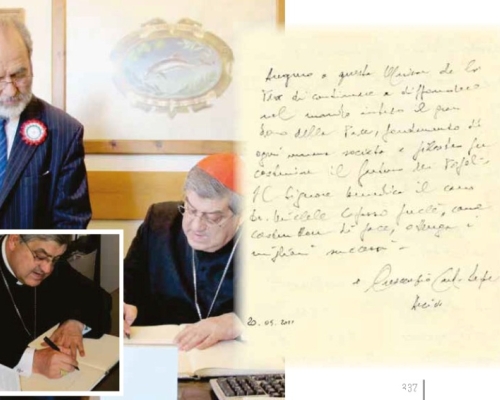 Auguro a questa Maison de la
Paix di continuare a diffondere
nel mondo intero il gran
dono della Pace, fondamento di
ogni umana società e
costruire il futuro dei Popoli.
Il Signore benedica il caro
dr. Michele Capasso perché, come
costruttore di pace, ottenga i
migliori successi.
+ Crescenzio Card. Sepe
20.05.2011
237